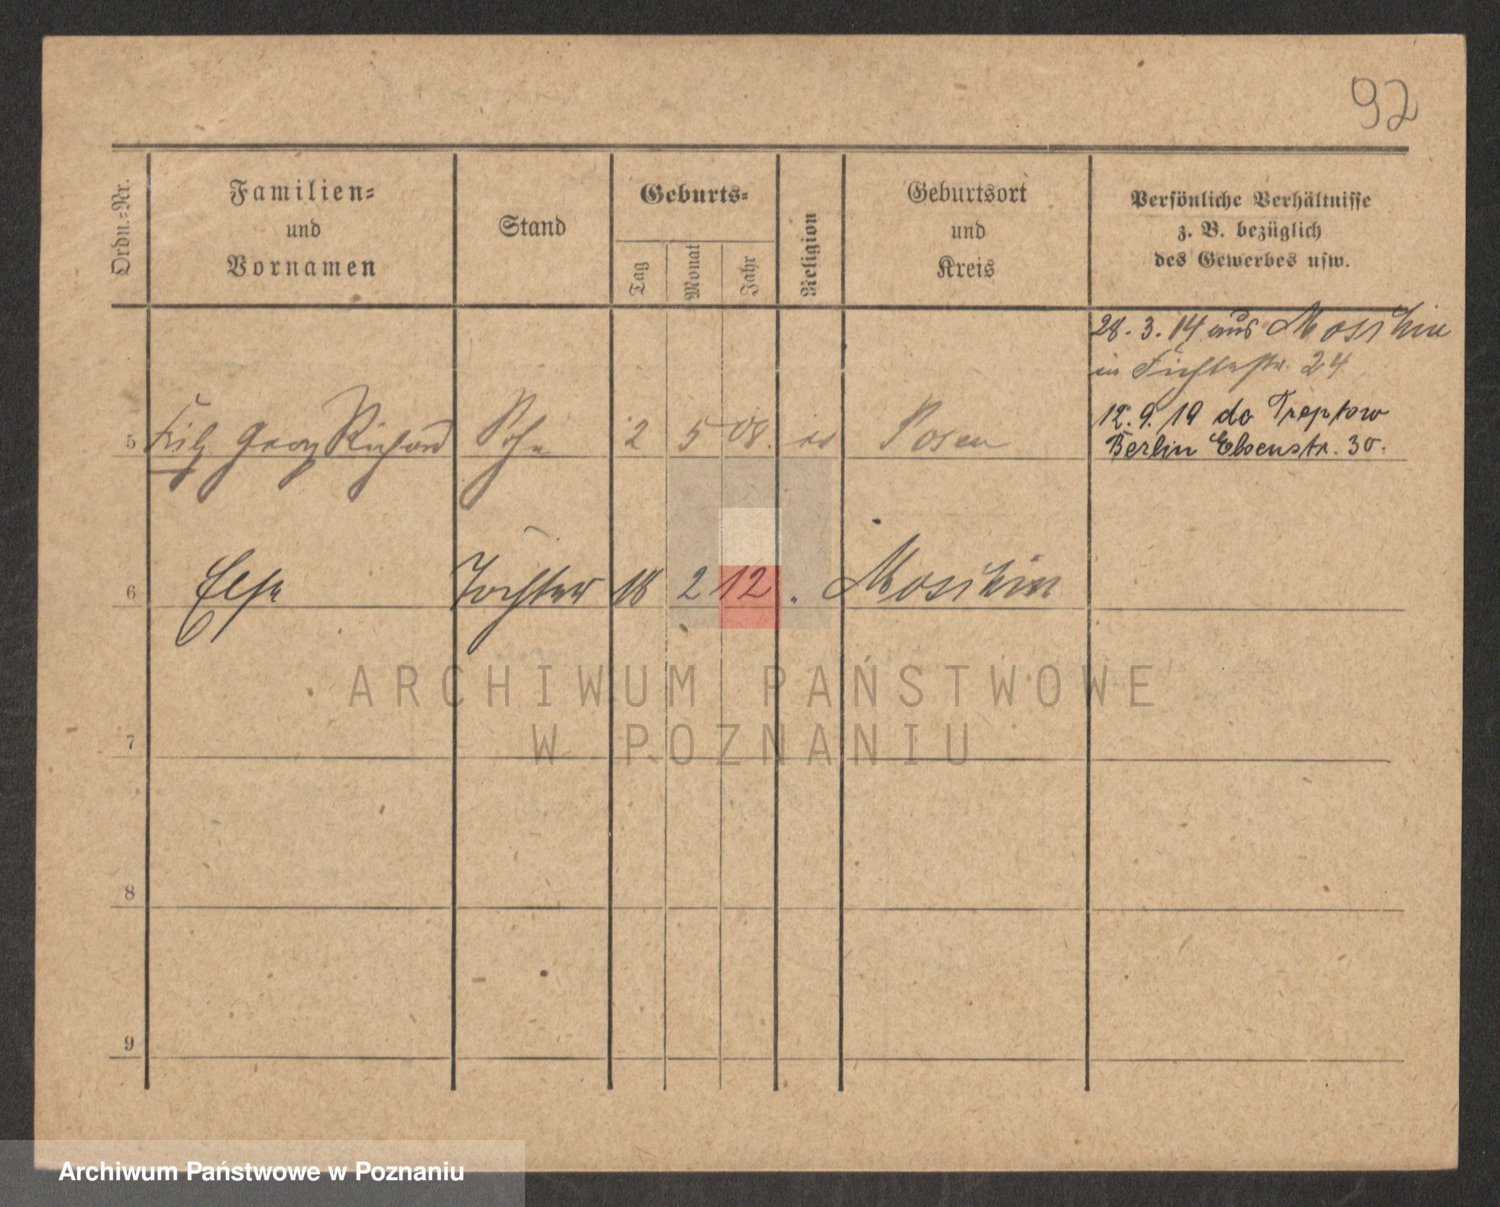 92
Ordn.-Nr.
Familien-
und
Vornamen
Stand
Geburts-
Tag
Monat
Jahr
Religion
Geburtsort
und
Kreis
Persönliche Verhältnisse
z. B. bezüglich
des Gewerbes usw.
28. 3. 14 aus Moschin
in Fichtestr. 24
12. 9. 19 do Treptow
Berlin Elsenstr. 30.
5 Fritz Georg Richard Sohn 2 5 08. Posen
6 Else Tochter 18 2 12 . Moschin
7
8
9
ARCHIWUM PAŃSTWOWE
W POZNANIU
Archiwum Państwowe w Poznaniu